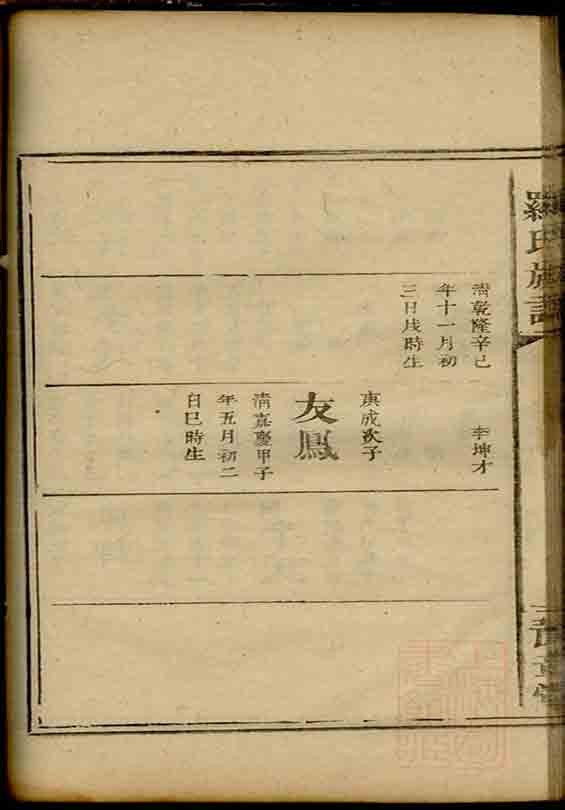 羅氏族譜
清乾隆辛巳
年十一月初
三日戌時生
李坤才
庚成次子
友鳳
清嘉慶甲子
年五月初二
日巳時生